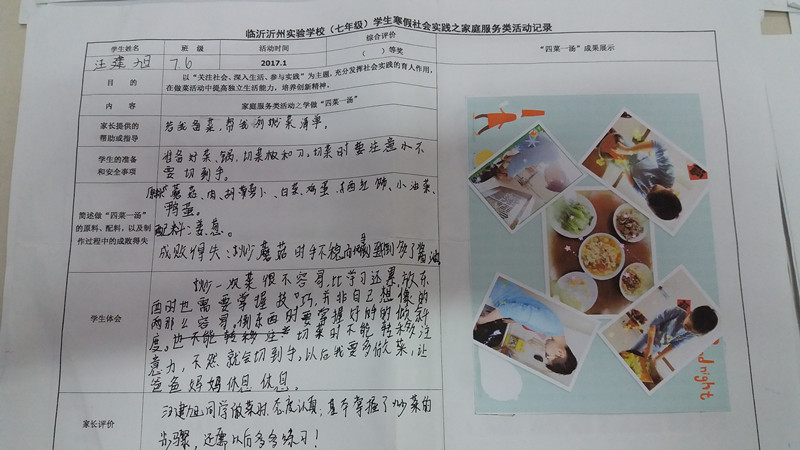 临沂沂州实验学校（七年级）学生寒假社会实践之家庭服务类活动记录
学生姓名 班 级 活动时间 综合评价 “四菜一汤”成果展示
汪建旭 7.6 2017.1 （ ）等奖
目 的 以“关注社会、深入生活、参与实践”为主题，充分发挥社会实践的育人作用，
在做菜活动中提高独立生活能力、培养创新精神。
内 容 家庭服务类活动之学做“四菜一汤”
家长提供的
帮助或指导
给我备菜，帮我列做菜清单。
学生的准备
和安全事项
准备好菜、锅、切菜板和刀。切菜时要注意小不
要切到手。
简述做“四菜一汤”
的原料、配料、以及制
作过程中的成败得失
原料：蘑菇、肉、胡萝卜、白菜、鸡蛋、西红柿、小油菜、
鸭蛋。
配料：姜葱。
成败得失：炒蘑菇时手不稳 倒多了酱油
学生体会
炒一次菜很不容易，比学习还累，放东
西时也需要掌握技巧，并非自己想像的
那么容易。倒东西时要掌握好的倾斜
度。切菜时不能转移注
意力，不然就会切到手，以后我要多做菜，让
爸爸妈妈休息休息。
家长评价
汪建旭同学做菜时，态度认真，基本掌握了炒菜的
步骤，还需以后多多练习！
night